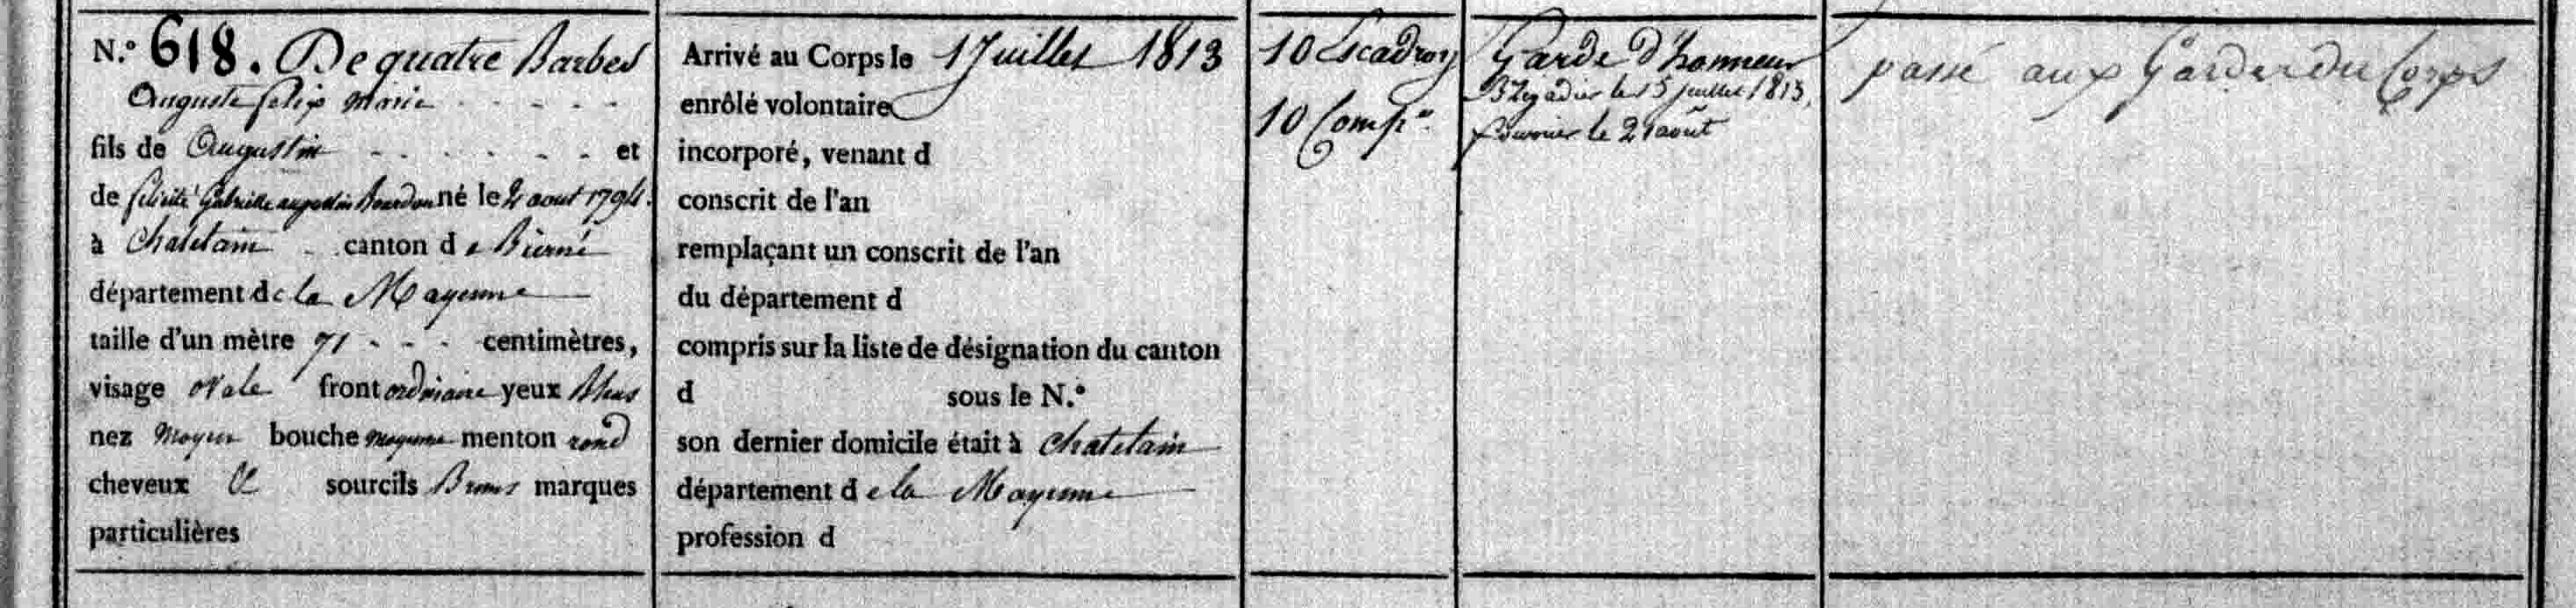 N.° 618. De quatre Barbes
Auguste felix marie
fils de Augustin et
de felicité Gabrielle augustin Bourdon né le 4 aout 1794.
à Chatelain canton de Bierné
département de la Mayenne
taille d'un mètre 71 centimètres,
visage ovale front ordinaire yeux Bleus
nez moyen bouche moyenne menton rond
cheveux et sourcils Bruns marques
particulières
Arrivé au Corps le 1 Juillet 1813
enrôlé volontaire
incorporé, venant d
conscrit de l'an
remplaçant un conscrit de l'an
du département d
compris sur la liste de désignation du canton
d sous le N.°
son dernier domicile était à chatelain
département de la Mayenne
profession d
10 Escadron
10 Comp.e
Garde d'honneur
Brigadier le 15 juillet 1813,
fourrier le 21 août
passé aux Gardes du Corps